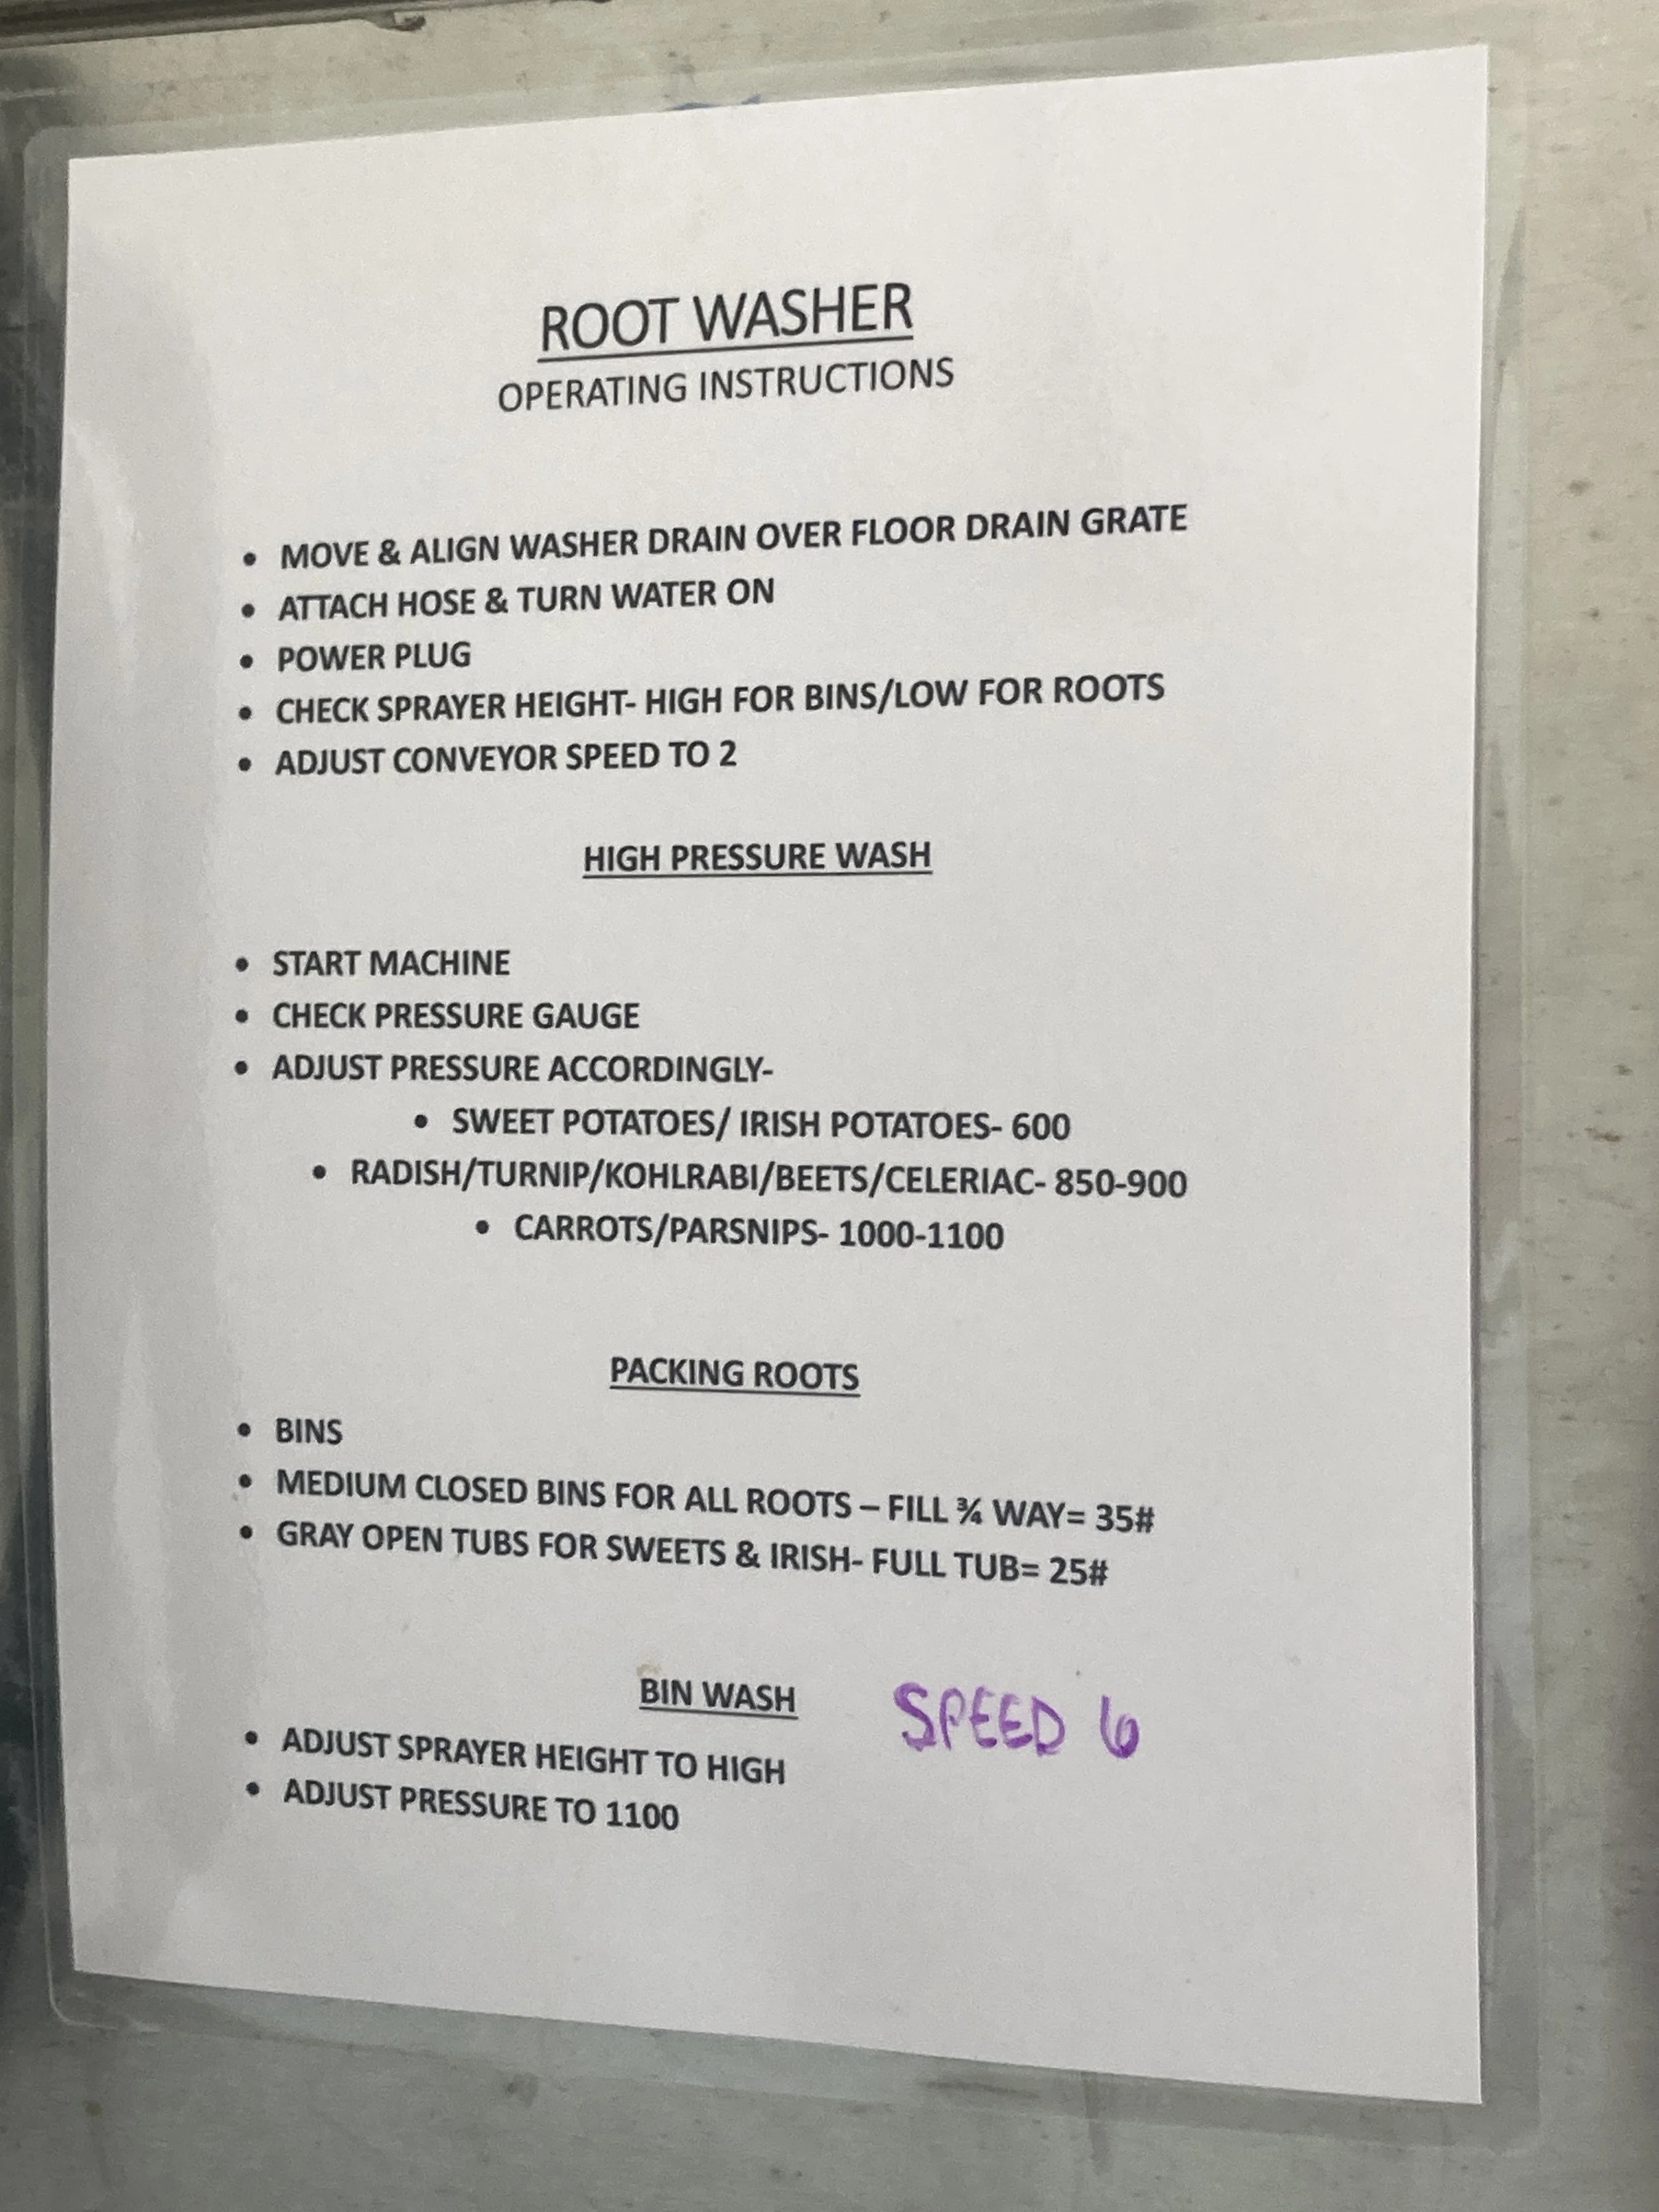 ROOT WASHER
OPERATING INSTRUCTIONS
• MOVE & ALIGN WASHER DRAIN OVER FLOOR DRAIN GRATE
• ATTACH HOSE & TURN WATER ON
• POWER PLUG
• CHECK SPRAYER HEIGHT- HIGH FOR BINS/LOW FOR ROOTS
• ADJUST CONVEYOR SPEED TO 2
HIGH PRESSURE WASH
• START MACHINE
• CHECK PRESSURE GAUGE
• ADJUST PRESSURE ACCORDINGLY-
• SWEET POTATOES/ IRISH POTATOES- 600
• RADISH/TURNIP/KOHLRABI/BEETS/CELERIAC- 850-900
• CARROTS/PARSNIPS- 1000-1100
PACKING ROOTS
• BINS
• MEDIUM CLOSED BINS FOR ALL ROOTS – FILL ¾ WAY= 35#
• GRAY OPEN TUBS FOR SWEETS & IRISH- FULL TUB= 25#
BIN WASH SPEED 6
• ADJUST SPRAYER HEIGHT TO HIGH
• ADJUST PRESSURE TO 1100